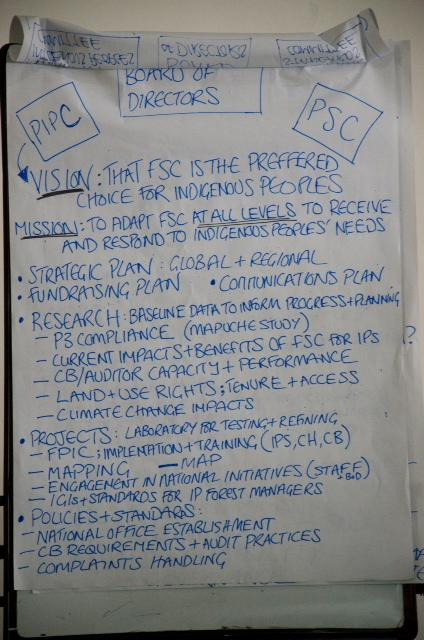 BOARD OF
DIRECTORS
PIPC
PSC
VISION: THAT FSC IS THE PREFFERED
CHOICE FOR INDIGENOUS PEOPLES
MISSION: TO ADAPT FSC AT ALL LEVELS TO RECEIVE
AND RESPOND TO INDIGENOUS PEOPLES' NEEDS
• STRATEGIC PLAN: GLOBAL + REGIONAL
• FUNDRAISING PLAN • COMMUNICATIONS PLAN
• RESEARCH: BASELINE DATA TO INFORM PROGRESS + PLANNING
- P3 COMPLIANCE (MAPUCHE STUDY)
- CURRENT IMPACTS + BENEFITS OF FSC FOR IPS ?
- CB/AUDITOR CAPACITY + PERFORMANCE
- LAND + USE RIGHTS; TENURE + ACCESS
- CLIMATE CHANGE IMPACTS
• PROJECTS: LABORATORY FOR TESTING + REFINING
- FPIC; IMPLENTATION + TRAINING (IPS, CH, CB)
- MAPPING - MAP
- ENGAGEMENT IN NATIONAL INITIATIVES (STAFF, BoD)
- IGIS + STANDARDS FOR IP FOREST MANAGERS
• POLICIES + STANDARDS:
- NATIONAL OFFICE ESTABLISHMENT
- CB REQUIREMENTS + AUDIT PRACTICES
- COMPLAINTS HANDLING